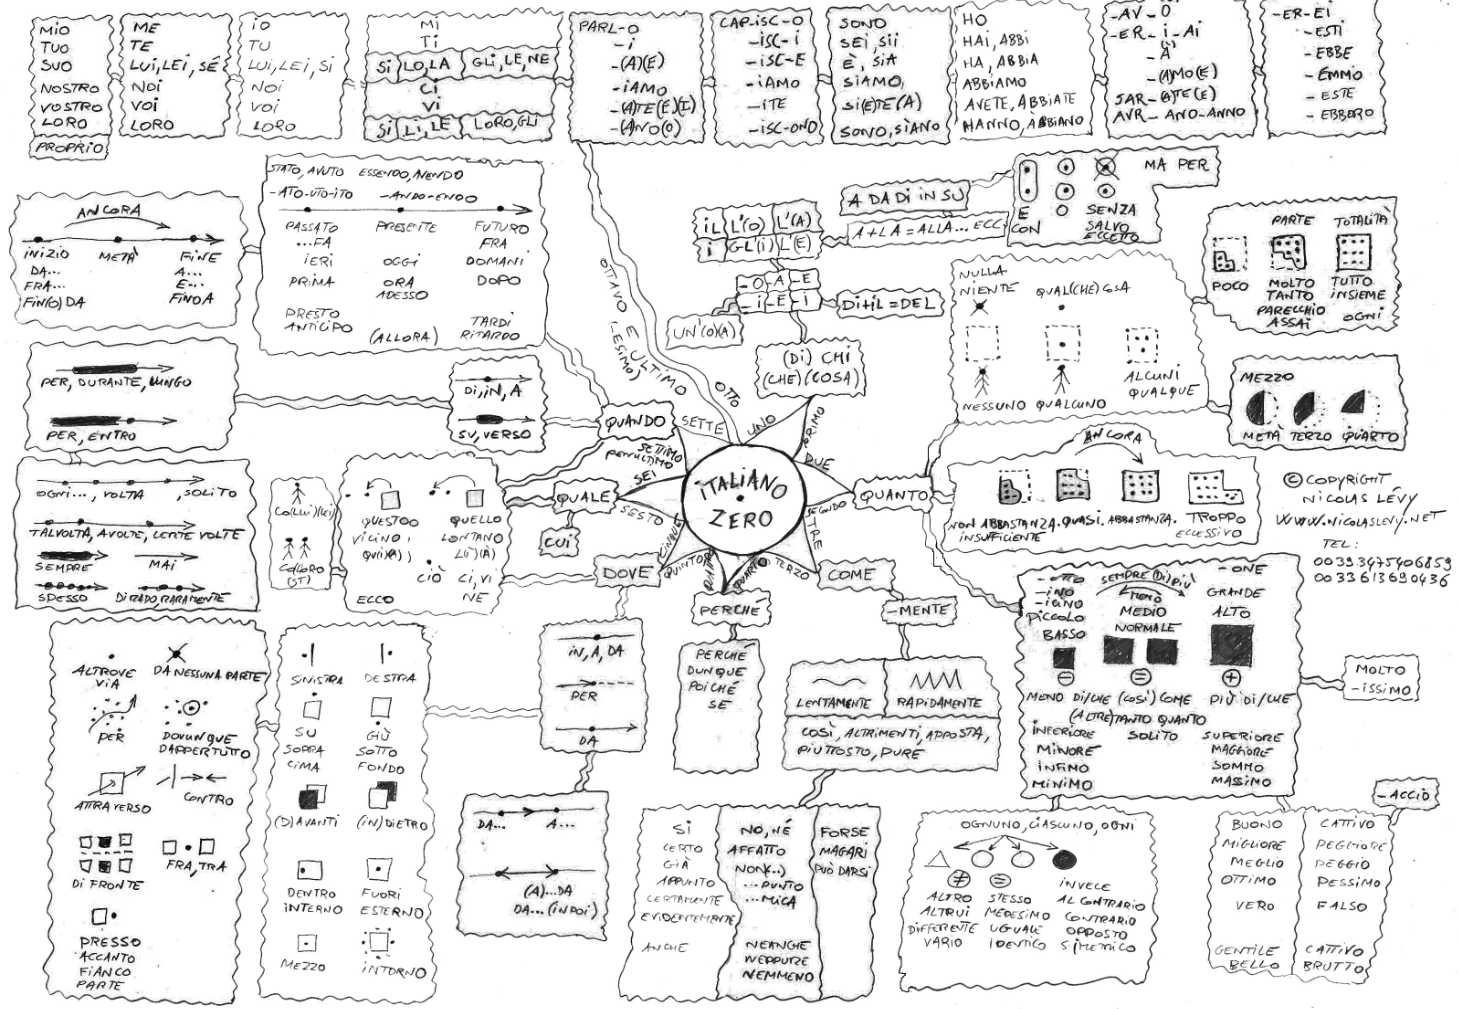 MIO
TUO
SUO
NOSTRO
VOSTRO
LORO
PROPRIO
ME
TE
LUI, LEI, SÉ
NOI
VOI
LORO
IO
TU
LUI, LEI, SI
NOI
VOI
LORO
MI
TI
SI LO, LA GLI, LE, NE
CI
VI
SI LI, LE LORO, GLI
PARL-O
-I
-(A)(E)
-IAMO
-(A)TE(E)(I)
-(A)NO(O)
CAP-ISC-O
-ISC-I
-ISC-E
-IAMO
-ITE
-ISC-ONO
SONO
SEI, SII
È, SIA
SIAMO,
SI(E)TE(A)
SONO, SIANO
HO
HAI, ABBI
HA, ABBIA
ABBIAMO
AVETE, ABBIATE
HANNO, ABBIANO
-AV-O
-ER-I-AI
-A
-(A)MO(E)
SAR-(A)TE(E)
AVR-ANO-ANNO
-ER-EI
-ESTI
-EBBE
-EMMO
-ESTE
-EBBERO
ANCORA
INIZIO META FINE
DA... A...
FRA... E...
FIN(O) DA FINO A
STATO, AVUTO ESSENDO, AVENDO
-ATO-UTO-ITO -ANDO-ENDO
PASSATO PRESENTE FUTURO
...FA FRA
IERI OGGI DOMANI
PRIMA ORA DOPO
ADESSO
PRESTO TARDI
ANTICIPO (ALLORA) RITARDO
PER, DURANTE, LUNGO
PER, ENTRO
DI, IN, A
SU, VERSO
OGNI..., VOLTA , SOLITO
TALVOLTA, A VOLTE, CERTE VOLTE
SEMPRE MAI
SPESSO DI RADO, RARAMENTE
OTTAVO E ULTIMO
(ESIMO)
IL L'(O) L'(A)
I GL'(I) L(E)
-O-A-E
-I-E-I
UN'(O)(A)
DI+IL=DEL
A DA DI IN SU
A+LA=ALLA... ECC
(DI) CHI
(CHE) (COSA)
E
CON
MA PER
SENZA
SALVO
ECCETTO
PARTE TOTALITÀ
POCO MOLTO TUTTO
TANTO INSIEME
PARECCHIO OGNI
ASSAI
NULLA
NIENTE QUAL(CHE)COSA
NESSUNO QUALCUNO
ALCUNI
QUALQUE
MEZZO
METÀ TERZO QUARTO
ANCORA
NON ABBASTANZA. QUASI. ABBASTANZA. TROPPO
INSUFFICIENTE ECCESSIVO
© COPYRIGHT
NICOLAS LÉVY
WWW.NICOLASLEVY.NET
TEL:
00393475406859
0033613690436
ITALIANO
ZERO
UNO
PRIMO
DUE
SECONDO
TRE
TERZO
QUARTO
CINQUE
QUINTO
SEI
SESTO
SETTE
SETTIMO
PENULTIMO
OTTO
QUANDO
QUALE
CUI
DOVE
PERCHÉ
COME
QUANTO
CO(LUI)(LEI)
CO(LORO)
(ST)
QUESTO QUELLO
VICINO, LONTANO
QUI(A), LI)(A)
CIÒ CI, VI
ECCO NE
-MENTE
PERCHÉ
DUNQUE
POICHÉ
SE
LENTAMENTE RAPIDAMENTE
COSÌ, ALTRIMENTI, APPOSTA,
PIUTTOSTO, PURE
-OTTO SEMPRE (DI) PIÙ -ONE
-INO MENO GRANDE
-IGNO MEDIO ALTO
PICCOLO NORMALE
BASSO
MENO DI/CHE (COSÌ) COME PIÙ DI/CHE
(ALTRE)TANTO QUANTO
INFERIORE SOLITO SUPERIORE
MINORE MAGGIORE
INFIMO SOMMO
MINIMO MASSIMO
MOLTO
-ISSIMO
ALTROVE DA NESSUNA PARTE
VIA
PER DOVUNQUE
DAPPERTUTTO
ATTRAVERSO CONTRO
DI FRONTE FRA, TRA
PRESSO
ACCANTO
FIANCO
PARTE
SINISTRA DESTRA
SU GIÙ
SOPRA SOTTO
CIMA FONDO
(D)AVANTI (IN)DIETRO
DENTRO FUORI
INTERNO ESTERNO
MEZZO INTORNO
IN, A, DA
PER
DA
DA... A...
(A)...DA
DA...(IN POI)
SI
CERTO
GIÀ
APPUNTO
CERTAMENTE
EVIDENTEMENTE
ANCHE
NO, NÉ
AFFATTO
NON(...)
...PUNTO
...MICA
NEANCHE
NEPPURE
NEMMENO
FORSE
MAGARI
PUÒ DARSI
OGNUNO, CIASCUNO, OGNI
ALTRO STESSO INVECE
ALTRUI MEDESIMO AL CONTRARIO
DIFFERENTE UGUALE CONTRARIO
VARIO IDENTICO OPPOSTO
SIMETRICO
-ACCIO
BUONO CATTIVO
MIGLIORE PEGGIORE
MEGLIO PEGGIO
OTTIMO PESSIMO
VERO FALSO
GENTILE CATTIVO
BELLO BRUTTO